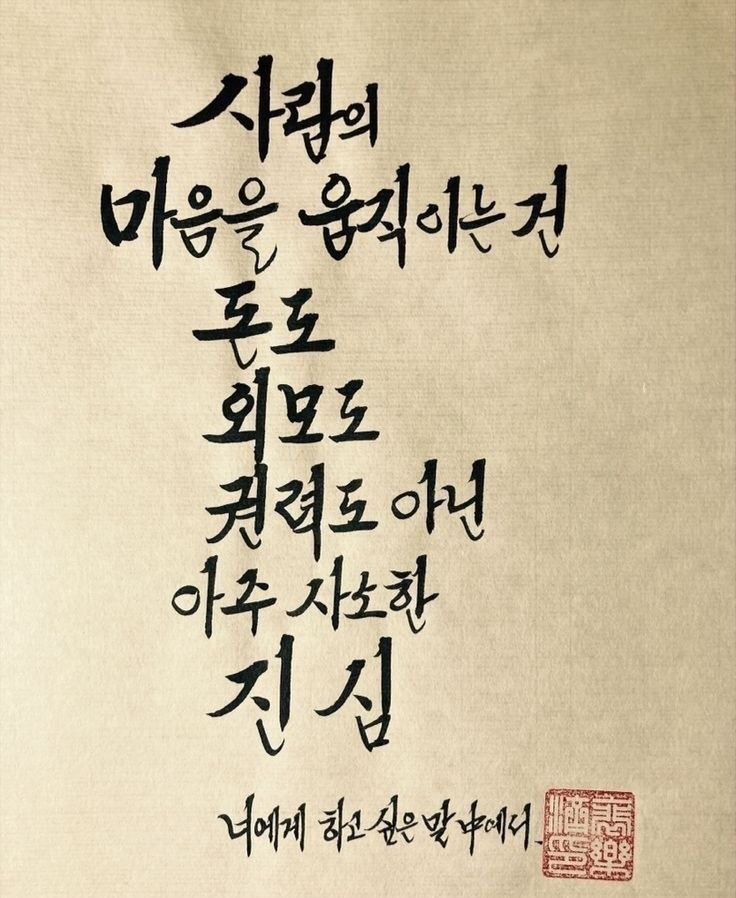 사람의
마음을 움직이는 건
돈도
외모도
권력도 아닌
아주 사소한
진심
너에게 하고 싶은 말 中에서.